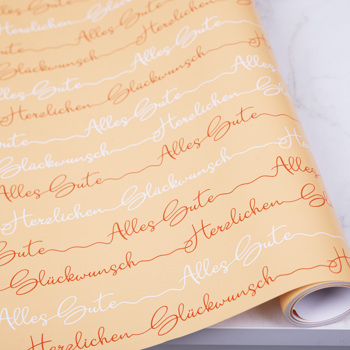 Alles Gute
Herzlichen Glückwunsch
Alles Gute
Herzlichen Glückwunsch
Alles Gute
Herzlichen
Glückwunsch Alles Gute
Alles Gute Herzlichen
Herzlichen Glückwunsch
Gute Alles Gute
Glückwunsch Herzlichen
Alles Gute Alles Gute
Herzlichen Glückwunsch